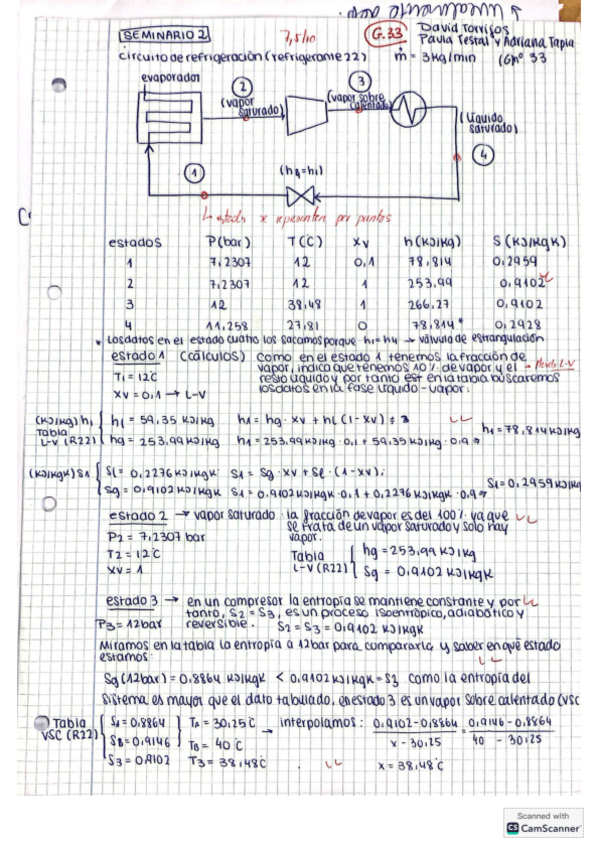 SEMINARIO 2
7,5/10
G.33
David Torrijos
Paula Testal y Adriana Tapia
circuito de refrigeración (refrigerante 22)
ṁ = 3 kg/min
(Gnº 33
evaporador
2
(vapor saturado)
3
(vapor sobre calentado)
(líquido saturado)
4
1
(h4=h1)
↳ estados se representan por puntos
estados P(bar) T(C) Xv h(KJ/Kg) S(KJ/KgK)
1 7,2307 12 0,1 78,814 0,2959
2 7,2307 12 1 253,99 0,9102
3 12 38,48 1 266,27 0,9102
4 11,258 27,81 0 78,814* 0,2928
* Los datos en el estado cuatro los sacamos porque h1=h4 → válvula de estrangulación
estado 1 (cálculos) Como en el estado 1 tenemos la fracción de
vapor, indica que tenemos 10% de vapor y el
resto líquido y por tanto est en la tabla buscaremos
los datos en la fase líquido-vapor.
T1 = 12ºC
Xv = 0,1 → L-V
(KJ/Kg) h1
Tabla
L-V (R22)
hl = 59,35 KJ/Kg h1 = hg · Xv + hl (1-Xv) =
hg = 253,99 KJ/Kg h1 = 253,99 KJ/Kg · 0,1 + 59,35 KJ/Kg · 0,9
h1 = 78,814 KJ/Kg
(KJ/KgK) S1
Sl = 0,2276 KJ/KgK S1 = Sg · Xv + Sl · (1-Xv);
Sg = 0,9102 KJ/KgK S1 = 0,9102 KJ/KgK · 0,1 + 0,2276 KJ/KgK · 0,9
S1 = 0,2959 KJ/Kg
estado 2 → vapor saturado la fracción de vapor es del 100% ya que
se trata de un vapor saturado y solo hay
vapor.
P2 = 7,2307 bar
T2 = 12ºC
Xv = 1
Tabla
L-V (R22)
hg = 253,99 KJ/Kg
Sg = 0,9102 KJ/KgK
estado 3 → en un compresor la entropía se mantiene constante y por
tanto, S2 = S3, es un proceso isoentrópico, adiabático y
reversible. S2 = S3 = 0,9102 KJ/KgK
P3 = 12bar
Miramos en la tabla la entropía a 12bar para compararla y saber en qué estado
estamos:
Sg (12bar) = 0,8864 KJ/KgK < 0,9102 KJ/KgK = S3 como la entropía del
sistema es mayor que el dato tabulado, en estado 3 es un vapor sobre calentado (VSC
Tabla
VSC (R22)
SA = 0,8864 TA = 30,25ºC → interpolamos: 0,9102-0,8864 / x - 30,25 = 0,9146-0,8864 / 40 - 30,25
SB = 0,9146 TB = 40ºC
S3 = 0,9102 T3 = 38,48ºC x = 38,48ºC
Scanned with
CS CamScanner